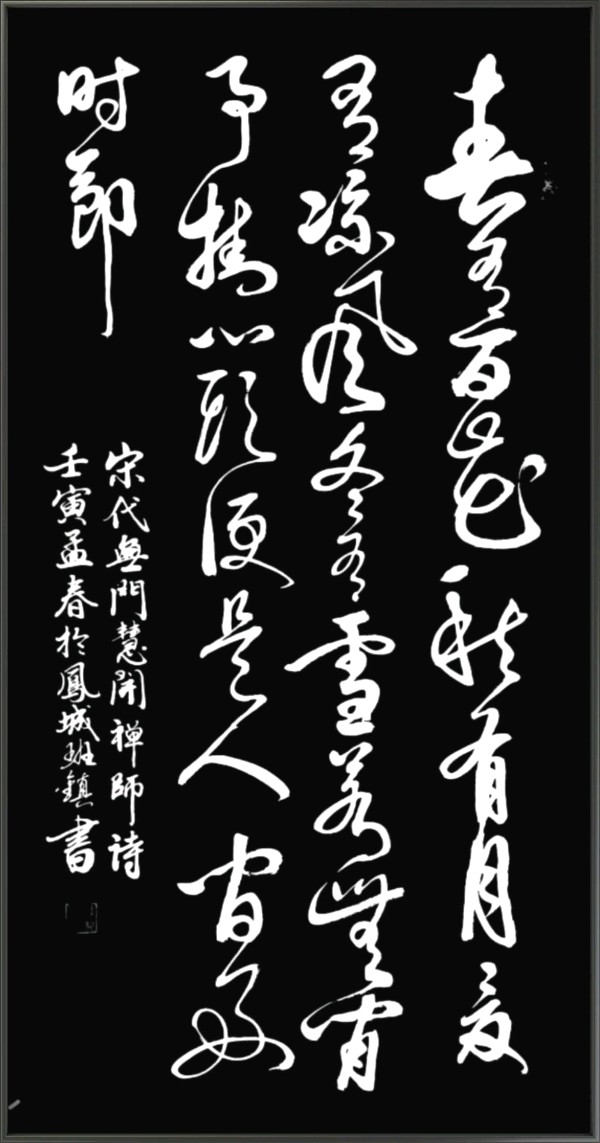 春有百花秋有月夏
有凉风冬有雪若無閒
事挂心头便是人间好
时節
宋代無門慧開禅師诗
壬寅孟春於鳳城班鎮書